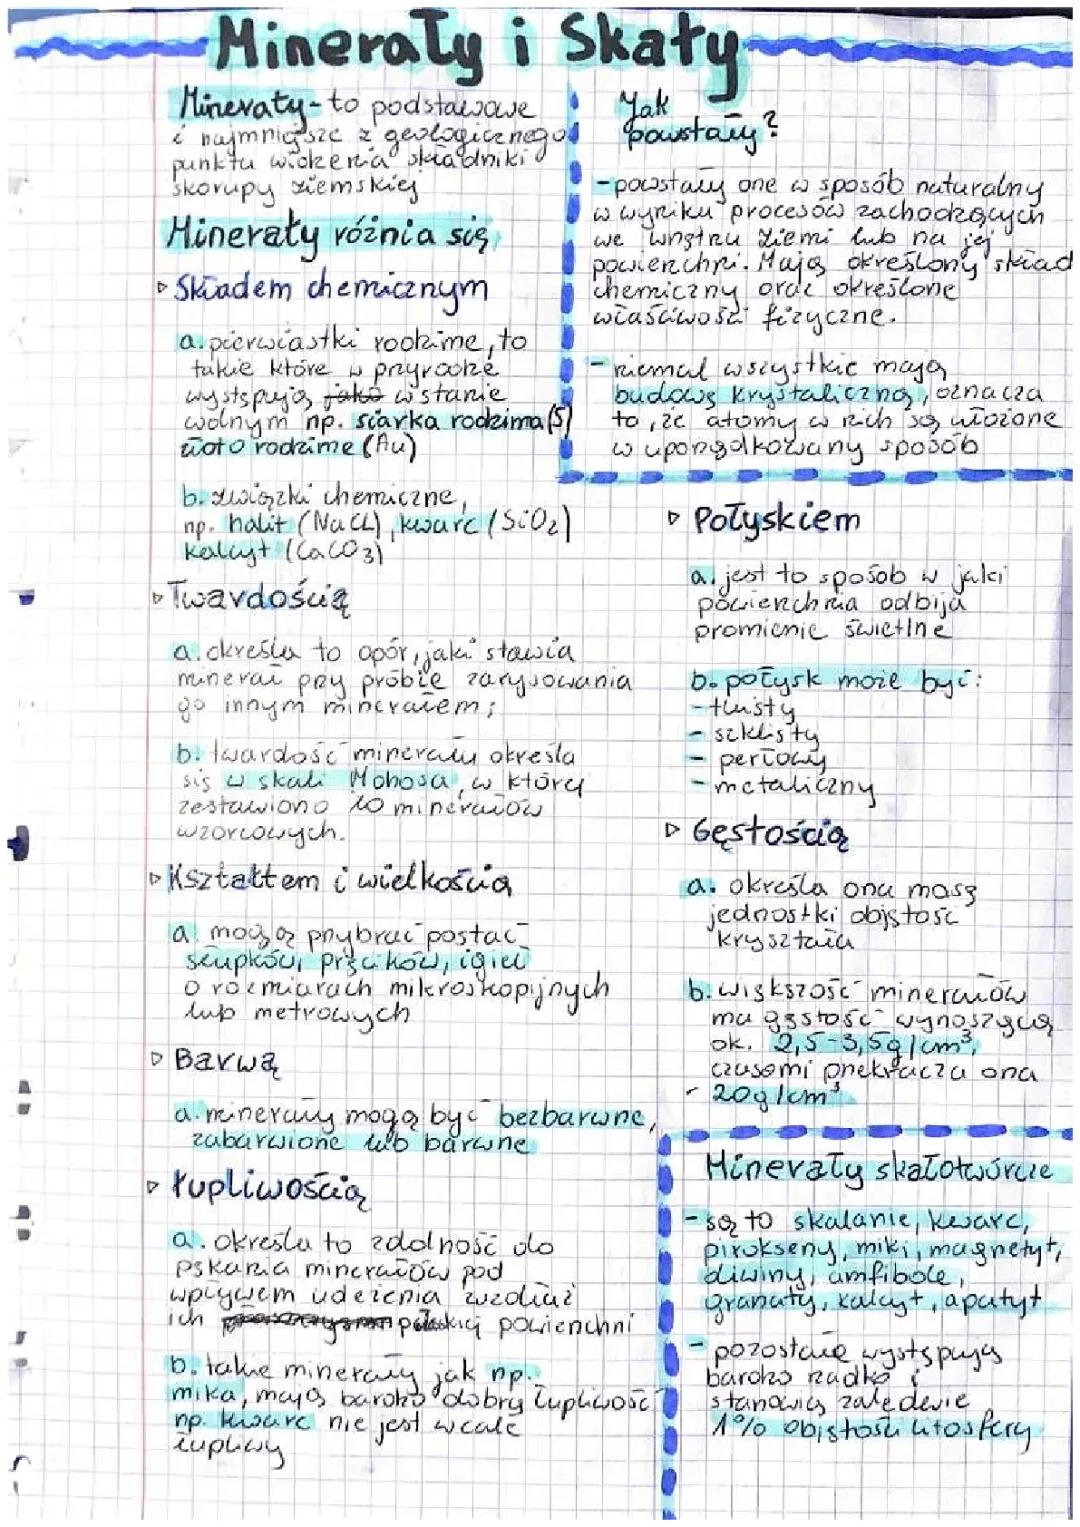 Minerały i Skały
Minerały - to podstawowe
i najmniejsze z geologicznego
punktu widzenia składniki
skorupy ziemskiej
Jak
powstały?
- powstały one w sposób naturalny
w wyniku procesów zachodzących
we wnętrzu ziemi lub na jej
powierzchni. Mają określony skład
chemiczny oraz określone
właściwości fizyczne.
- niemal wszystkie mają
budowę krystaliczną, oznacza
to, że atomy w nich są ułożone
w uporządkowany sposób
Minerały różnia się
▷ Składem chemicznym
a. pierwiastki rodzime, to
takie które w przyrodzie
występują jako w stanie
wolnym np. siarka rodzima (S)
złoto rodzime (Au)
b. związki chemiczne,
np. halit (NaCl), kwarc (SiO₂)
kalcyt (CaCO₃)
▷ Twardością
a. określa to opór, jaki stawia
minerał przy próbie zarysowania
go innym minerałem;
b. twardość minerału określa
się w skali Mohosa, w której
zestawiono 10 minerałów
wzorcowych.
▷ Kształtem i wielkością
a. mogą przybrać postać
słupków, pręcików, igieł
o rozmiarach mikroskopijnych
lub metrowych
▷ Barwą
a. minerały mogą być bezbarwne,
zabarwione lub barwne
▷ Łupliwością
a. określa to zdolność do
pękania minerałów pod
wpływem uderzenia wzdłuż
ich płaskiej powierzchni
b. takie minerały jak np.
mika, mają bardzo dobrą łupliwość
np. kwarc nie jest wcale
łupliwy
▷ Połyskiem
a. jest to sposób w jaki
powierzchnia odbija
promienie świetlne
b. połysk może być:
- tłusty
- szklisty
- perłowy
- metaliczny
▷ Gęstością
a. określa ona masę
jednostki objętość
kryształu
b. większość minerałów
ma gęstość wynoszącą
ok. 2,5-3,5g/cm³,
czasami przekracza ona
- 20g/cm³
Minerały skałotwórcze
- są to skalanie, kwarc,
pirokseny, miki, magnetyt,
oliwiny, amfibole,
granaty, kalcyt, apatyt
- pozostałe występują
bardzo rzadko i
stanowią zaledwie
1% objętości litosfery